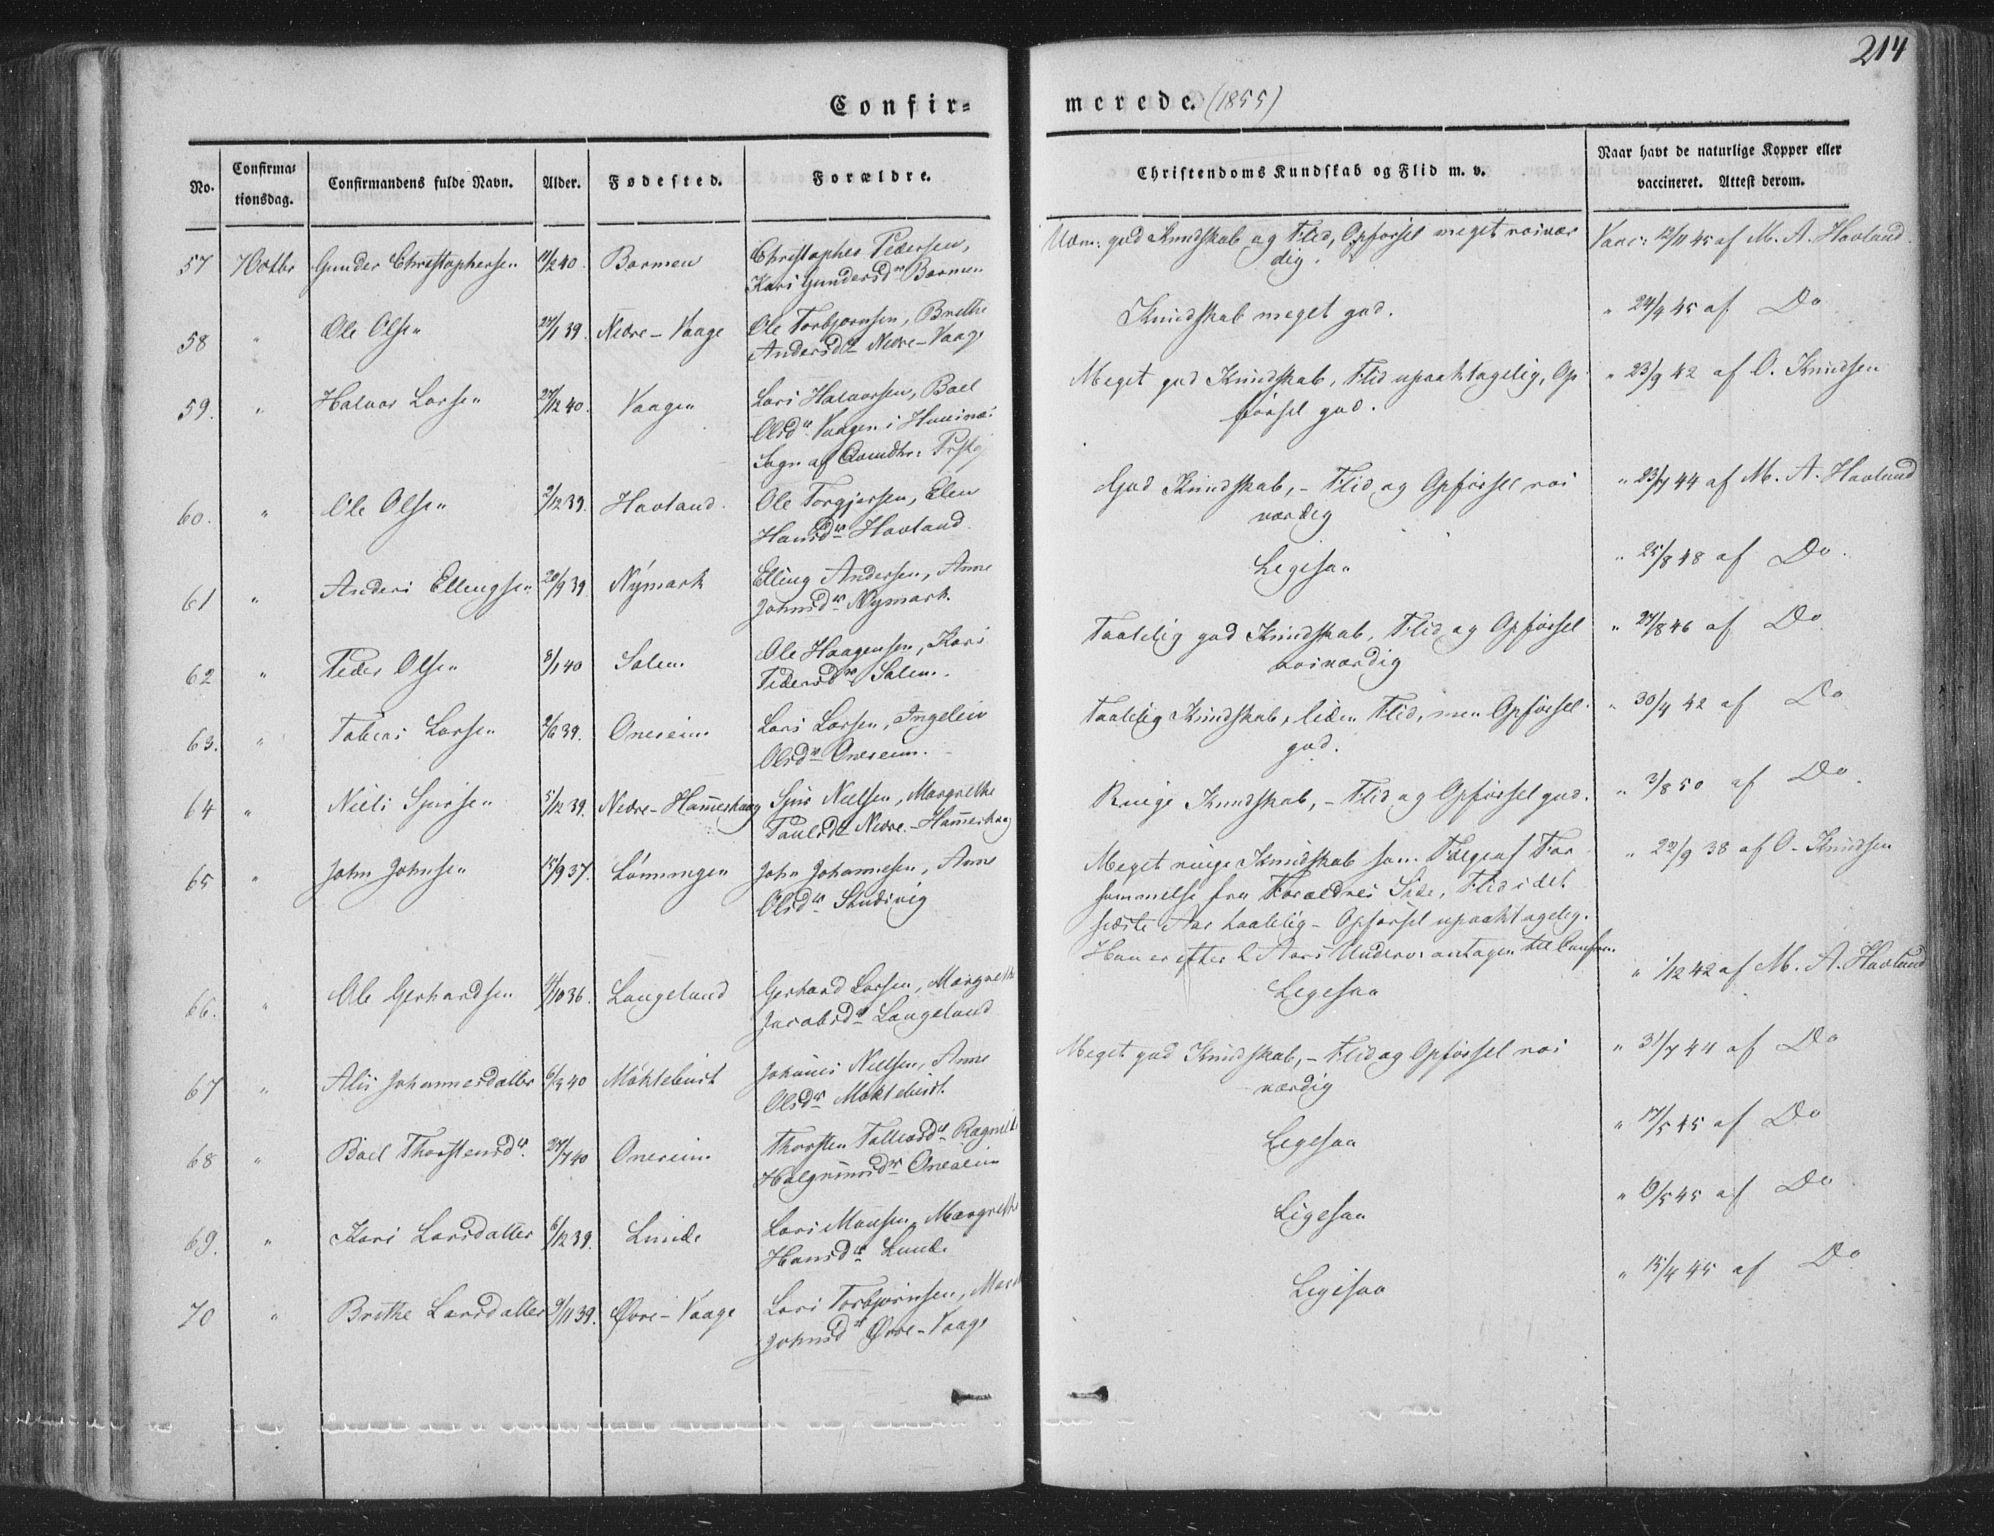 214
Confir- merede. (1855)
No. Confirma- tionsdag. Confirmandens fulde Navn. Alder. Fødested. Forældre. Christendoms Kundskab og Flid m. v. Naar havt de naturlige Kopper eller vaccineret. Attest derom.
57 7 Octbr Gunder Christophersen 11/2 40. Barmen Christopher Pedersen, god Kundskab og Flid, Opførsel meget rosvær Vacc: 12/11 45 af M. A. Havland.
Kari Gundersdr Barmen dig.
58 " Ole Olsen 39. Nedre-Vaage Ole Torbjørnsen, Brithe Kundskab meget god. " 24/9 45 af Do
Andersdtr Nedre-Vaage
59. " Halvor Larsen 27/12 40. Vaagen Lars Halvorsen, Boel Meget god Kundskab, Flid upaaklagelig, Op " 23/9 42 af O. Knudsen
Olsdr Vaagen i førsel god.
Sogn af
60. " Ole Olsen 9/12 39. Havland. Ole Torgjersen, Elen God Kundskab, - Flid og Opførsel ros " 44 af M. A. Havland
Hansdr Havland. værdig
61 " Anders Ellingsen 20/9 39 Nymark Elling Andersen, Anne Ligesaa " 25/8 48 af Do.
Johnsdr Nymark.
62 " Peder Olsen 8/1 40 Salem Ole Haagensen, Kari Taalelig god Kundskab, Flid og Opførsel " 27/8 46 af Do
Pedersdr Salem. rosværdig
63. " Tobias Larsen 2/6 39. Onereim Lars Larsen, Ingeleiv Taalelig Kundskab, liden Flid, men Opførsel " 42 af Do
Olsdr Onereim. god.
64 " Niels Sjursen 5/12 39. Nedre-Hammerhaug Sjur Nielsen, Margrethe Ringe Kundskab, - Flid og Opførsel god. " 3/8 50 af Do.
Paulsdtr Nedre-Hammerhaug
65 " John Johnsen 15/9 37. Lønningen John Johannesen, Anne Meget ringe Kundskab som Følge af For " 22/9 38 af O. Knudsen
Olsdr Sundsvig sømmelse fra Forældres Side, Flid i det
sidste Aar taalelig - Opførsel upaaklagelig.
Han er efter 2 Aars Underv: antagen til Confirm.
66. " Ole Gerhardsen 36. Langeland Gerhard Larsen, Margrethe Ligesaa " 1/12 42 af M. A. Havland
Jacobsdr Langeland
67 " Alis Johannesdatter 6/3 40 Møkleburst Johannes Nielsen, Anne Meget god Kundskab, - Flid og Opførsel ros " 31/7 44 af Do
Olsdr Møkleburst. værdig
68 " Boel Thorstensdr. 27/7 40 Onereim Thorsten Ragnilde Ligesaa " 17/5 45 af Do
Halgrimsdr Onereim
69. " Kari Larsdatter 6/12 39. Linde Lars Monsen, Margrethe Ligesaa " 6/5 45 af Do
Hansdr Linde
70 " Brithe Larsdatter 9/11 39. Øvre-Vaage Lars Torbjørnsen, Ligesaa " 15/4 45 af Do
Johnsdr Øvre-Vaage